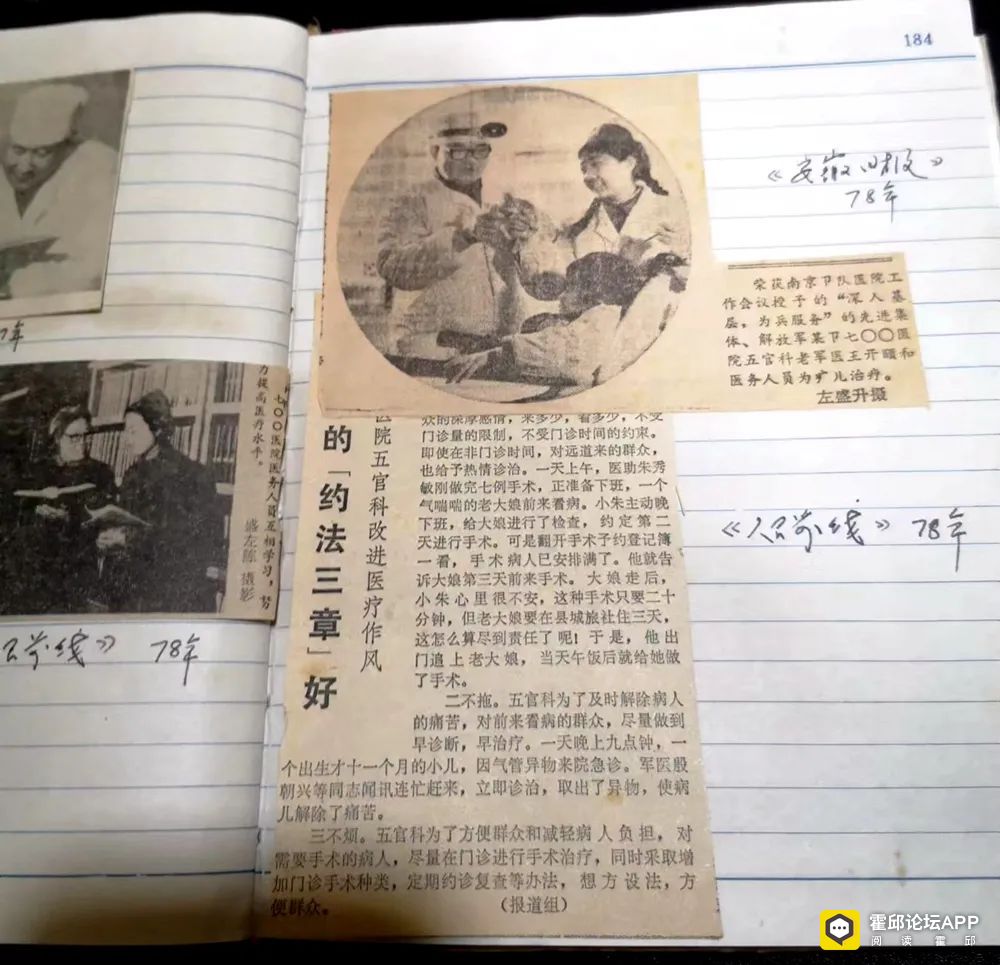 7年
力提高医疗水平。
七〇〇医院医务人员互相学习，努
盛左陈 摄影
前线》 78年
184
《安徽日报》
78年
荣获南京卩队医院工
作会议授予的“深入基
层，为兵服务”的先进集
体、解放军某卩七〇〇医
院五官科老军医王开颐和
医务人员为患儿治疗。
左盛升摄
《人民前线》 78年
的「约法三章」好
医院五官科改进医疗作风
众的深厚感情，来多少，看多少，不受
门诊量的限制，不受门诊时间的约束。
即使在非门诊时间，对远道来的群众，
也给予热情诊治。一天上午，医助朱秀
敏刚做完七例手术，正准备下班，一个
气喘喘的老大娘前来看病。小朱主动晚
下班，给大娘进行了检查，约定第二
天进行手术。可是翻开手术予约登记簿
一看，手术病人已安排满了。他就告
诉大娘第三天前来手术。大娘走后，
小朱心里很不安，这种手术只要二十
分钟，但老大娘要在县城旅社住三天，
这怎么算尽到责任了呢！于是，他出
门追上老大娘，当天午饭后就给她做
了手术。
二不拖。五官科为了及时解除病人
的痛苦，对前来看病的群众，尽量做到
早诊断，早治疗。一天晚上九点钟，一
个出生才十一个月的小儿，因气管异物来院急诊。军医殷
朝兴等同志闻讯连忙赶来，立即诊治，取出了异物，使病
儿解除了痛苦。
三不烦。五官科为了方便群众和减轻病人负担，对
需要手术的病人，尽量在门诊进行手术治疗，同时采取增
加门诊手术种类，定期约诊复查等办法，想方设法，方
便群众。 （报道组）
霍邱论坛APP
阅读霍邱